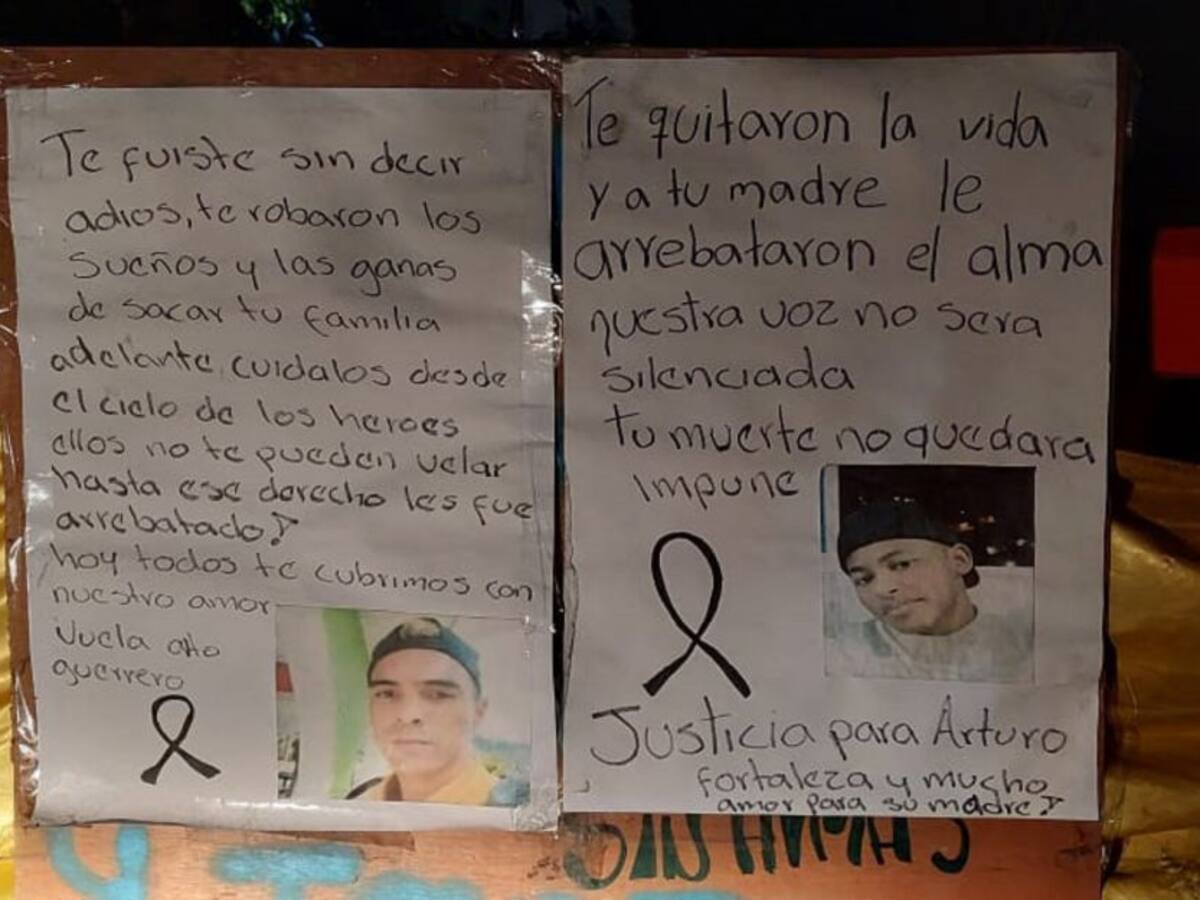 Te fuiste sin decir
adios, te robaron los
sueños y las ganas
de sacar tu familia
adelante, cuidalos desde
el cielo de los heroes
ellos no te pueden velar
hasta ese derecho les fue
arrebatado!
hoy todos te cubrimos con
nuestro amor
Vuela alto
guerrero
Te quitaron la vida
y a tu madre le
arrebataron el alma
nuestra voz no sera
silenciada
tu muerte no quedara
impune
Justicia para Arturo
fortaleza y mucho
amor para su madre!